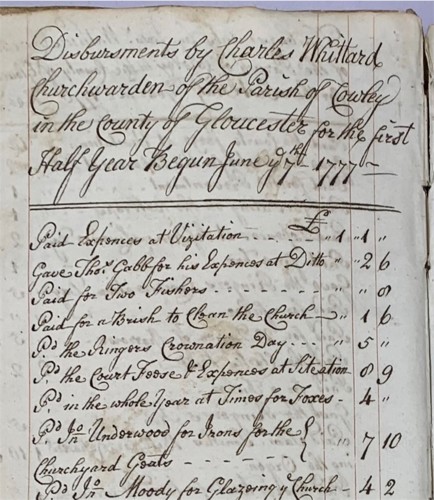 Disbursments by Charles Whittard
Churchwarden of the Parish of Cowley
in the County of Gloucester for the first
Half Year Begun June ye 7th 1777
£
Paid Expences at Vizitation - - - - " 1 " 1 "
Gave Thos Gabb for his Expences at Ditto " " 2 6
Paid for Two Fishers - - - - - - - " " " 8
Paid for a Brish to Clean the Church - " 1 6
Pd the Ringers Crownation Day - - - " 5 "
Pd the Court Feese & Expences at Siteation 8 9
Pd in the whole Year at Times for Foxes - 4 "
Pd Jno Underwood for Irons for the } " 7 10
Churchyard Geats - - - - -
Pd Jno Moody for Glazeing ye Church - 4 2